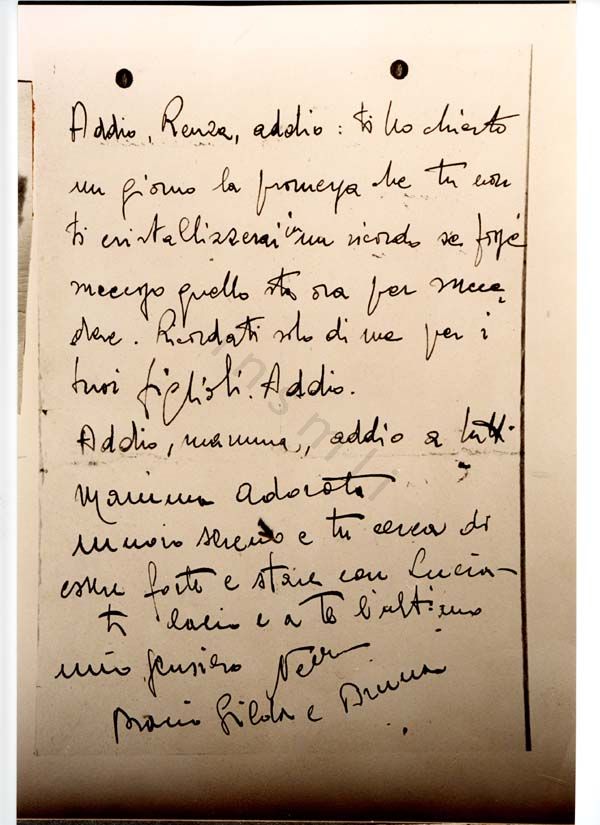 Addio, Renza, addio: ti ho chiesto
un giorno la promessa che tu non
ti cristallizzerai in un ricordo se fosse
successo quello sta ora per succe-
dere. Ricordati solo di me per i
tuoi figlioli. Addio.
Addio, mamma, addio a tutti.
Mamma adorata
muoio sereno e tu cerca di
essere forte e stare con Lucia-
ti bacio e a te l'ultimo
mio pensiero
Bacio Gilda e
insmli